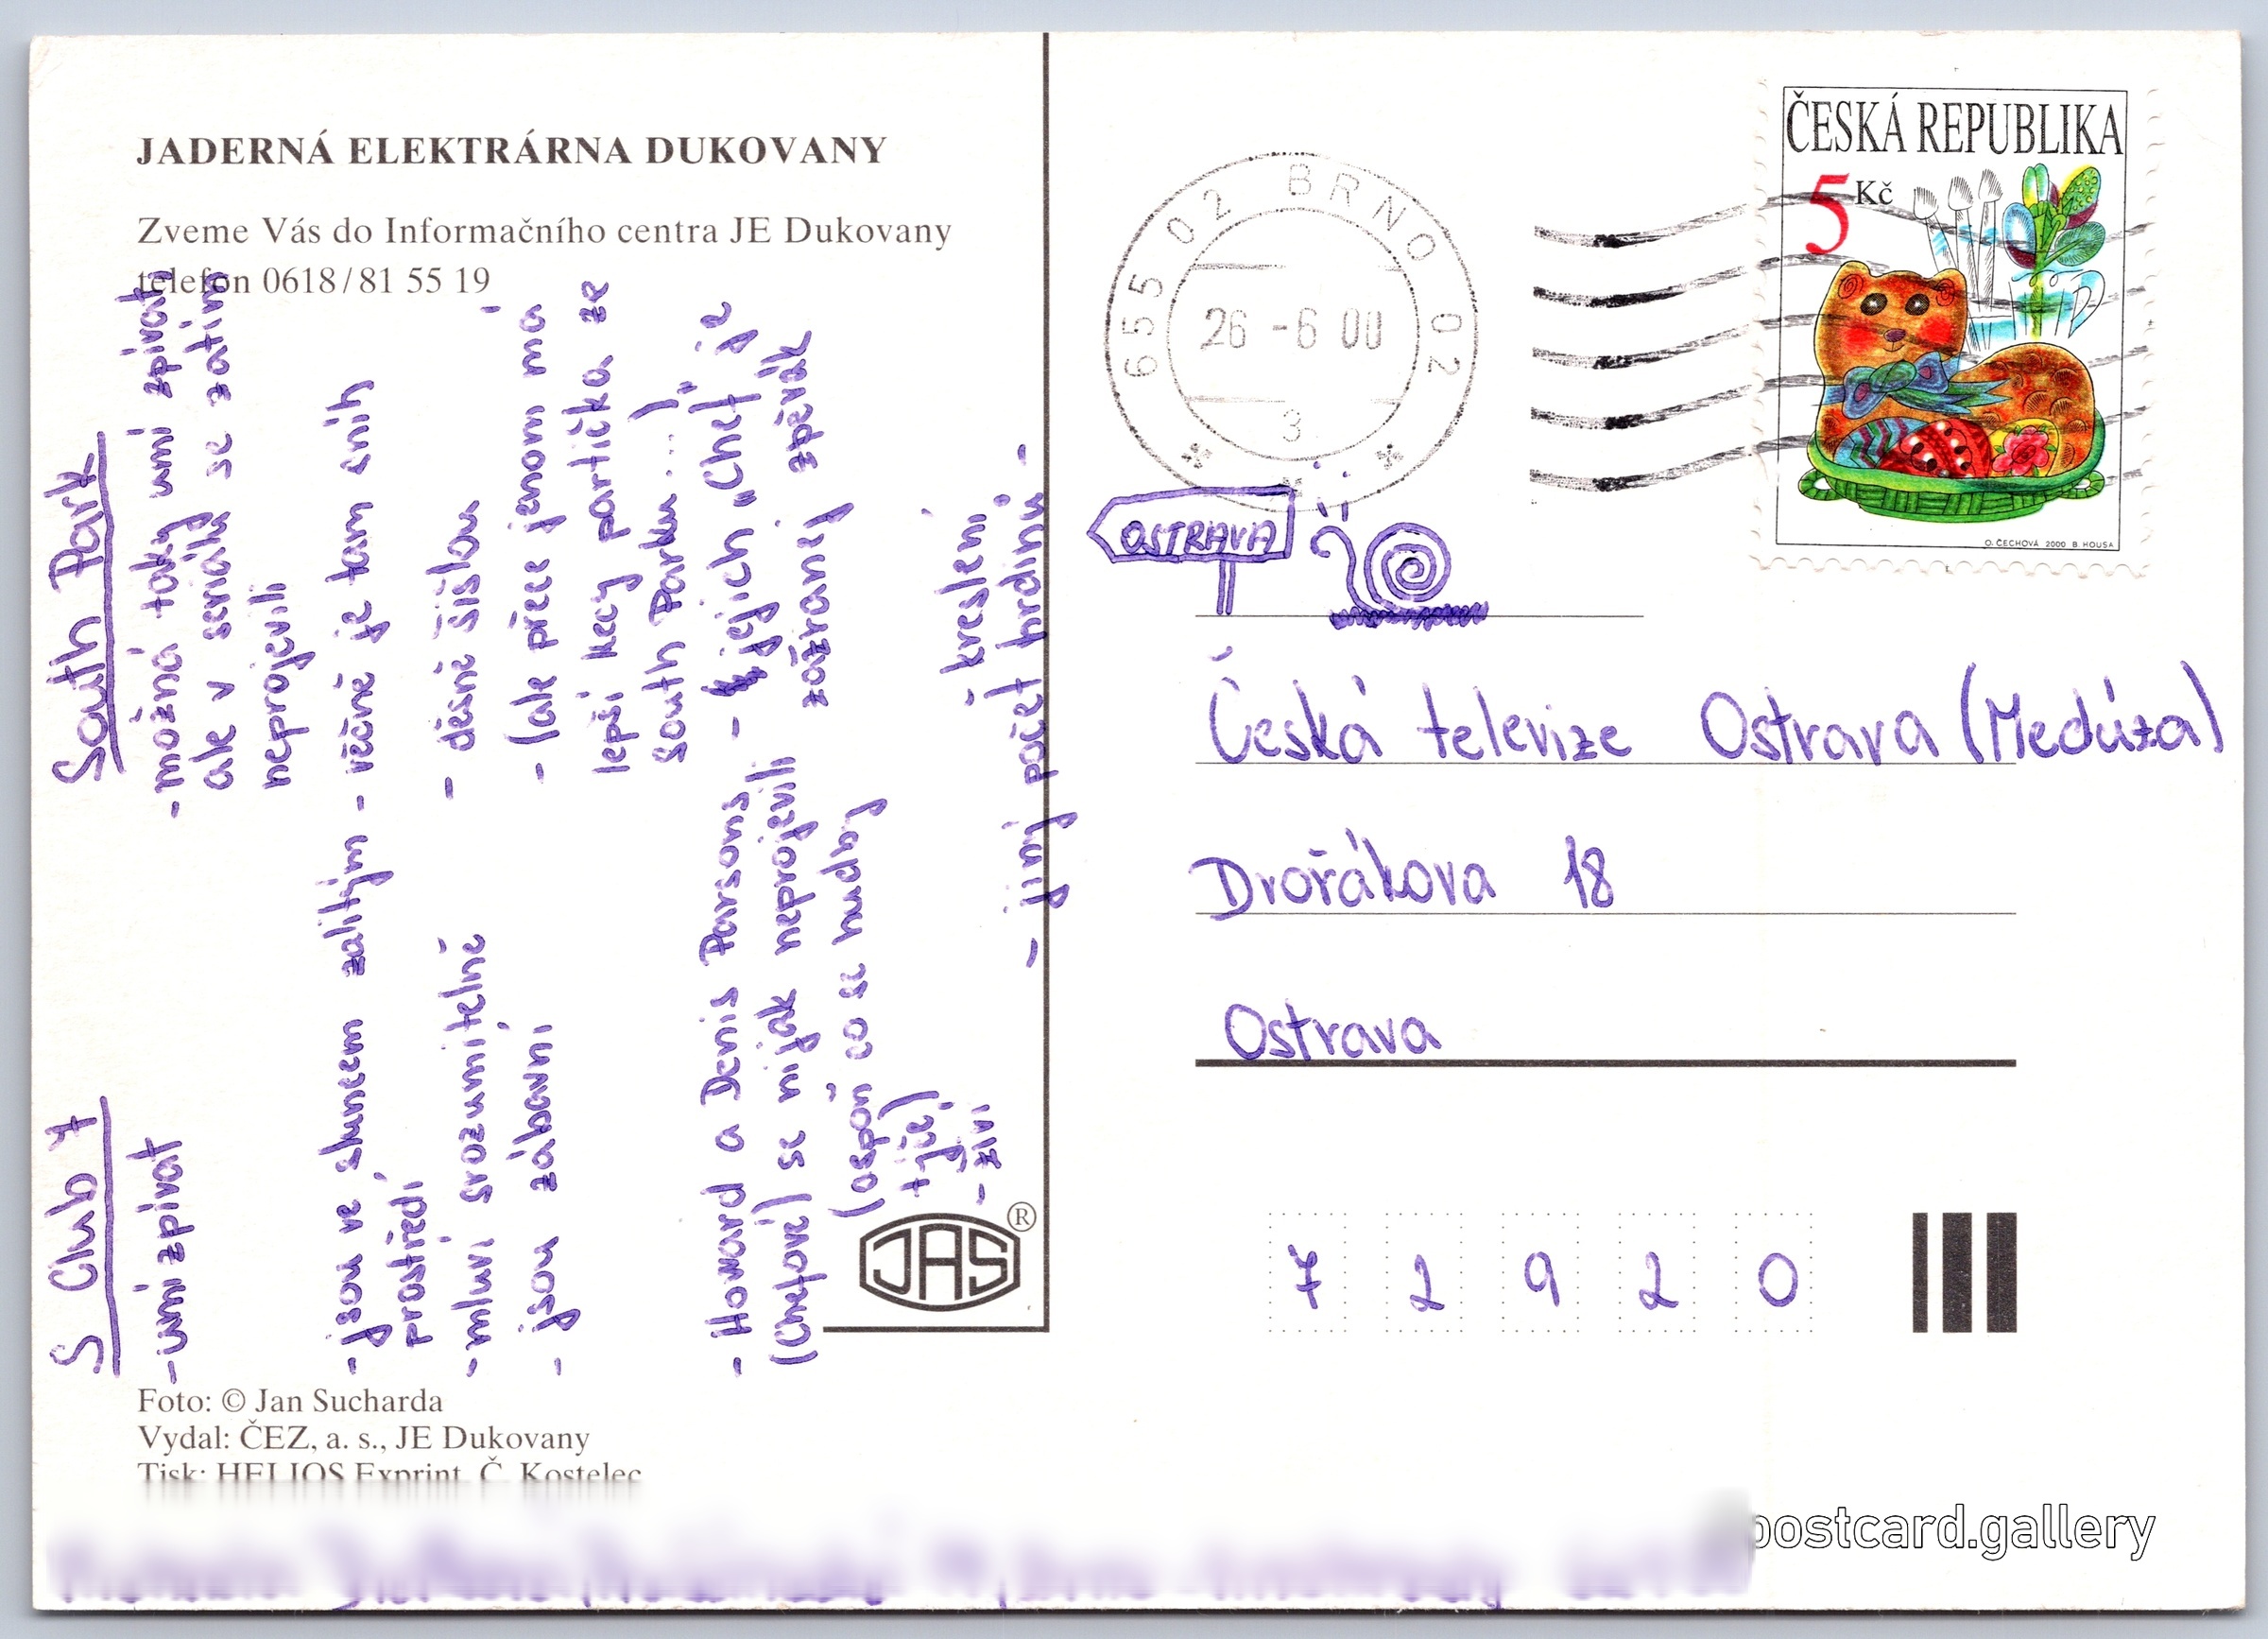 JADERNÁ ELEKTRÁRNA DUKOVANY
Zveme Vás do Informačního centra JE Dukovany
telefon 0618/81 55 19
S Club 7
- umí zpívat
- jsou ve sluncem zalitým
prostředí
- mluví srozumitelně
- jsou zábavní
- Howard a Denis Parsons
(Chefové) se nijak neprojevili
(aspoň co se hudby
týče)
- živí
South Park
- možná taky umí zpívat
ale v seriálu se zatím
neprojevili
- věčně je tam sníh
- děsně šišlou
- (ale přece jenom má
lepší kecy partička ze
South Parku...)
- jejich „Chef" je
zázranej zpěvák
- kreslení
- jinej počet hrdinů -
Foto: © Jan Sucharda
Vydal: ČEZ, a. s., JE Dukovany
Tisk: HELIOS Exprint, Č. Kostelec
JAS ®
655 02 BRNO 02
26 -6 00
3
ČESKÁ REPUBLIKA
5 Kč
O. ČECHOVÁ 2000 B. HOUSA
OSTRAVA
Česká televize Ostrava (Medúza)
Dvořákova 18
Ostrava
7 2 9 2 0
postcard.gallery